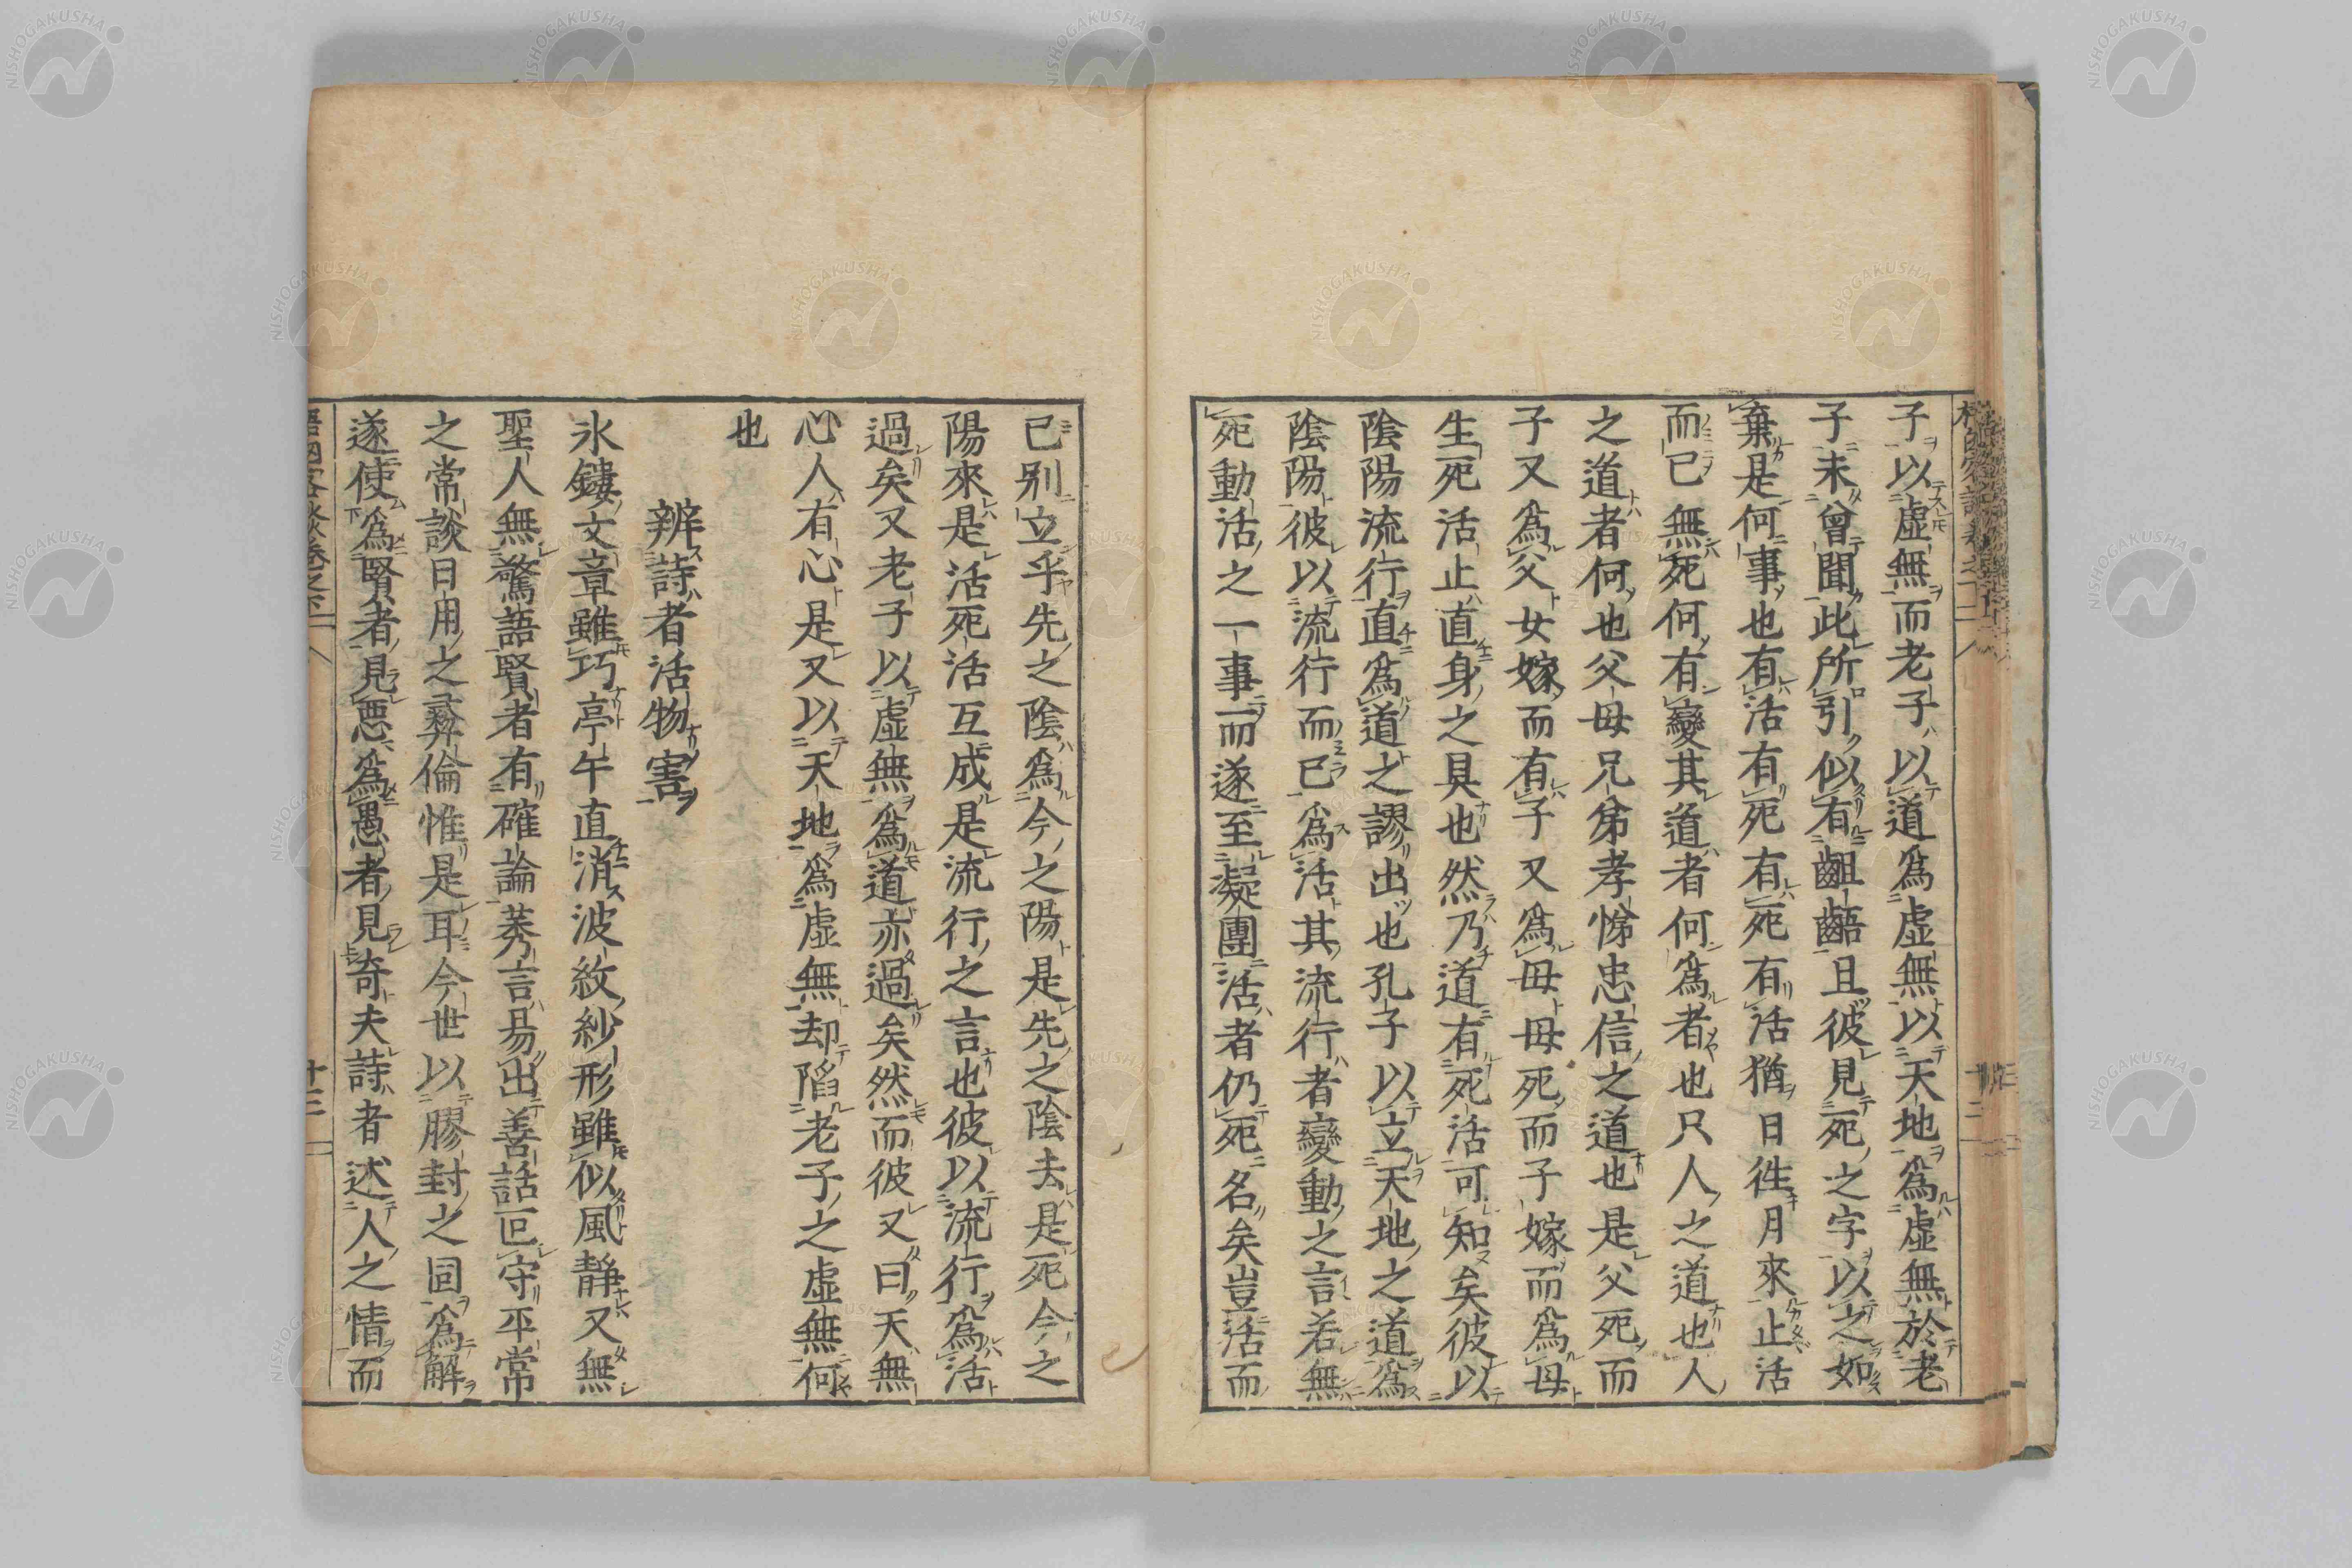 子以虛無而老子以道爲虛無以天地爲虛無於老
子未曾聞此所引似有齟齬且彼見死之字以之如
棄是何事也有活有死有死有活猶日徃月來止活
而已無死何有變其道者何爲者也只人之道也人
之道者何也父母兄弟孝悌忠信之道也是父死而
子又爲父女嫁而有子又爲母母死而子嫁而爲母
生死活止直身之具也然乃道有死活可知矣彼以
陰陽流行直爲道之謬出也孔子以立天地之道爲
陰陽彼以流行而已爲活其流行者變動之言若無
死動活之一事而遂至凝團活者仍死名矣豈活而
已別立乎先之陰爲今之陽是先之陰去是死今之
陽來是活死活互成是流行之言也彼以流行爲活
過矣又老子以虛無爲道亦過矣然而彼又曰天無
心人有心是又以天地爲虛無却陷老子之虛無何
也
辨詩者活物害
氷鏤文章雖巧亭午直消波紋紗形雖似風靜又無
聖人無驚語賢者有確論莠言易出善話叵守平常
之常談日用之彛倫惟是耳今世以膠封之固爲解
遂使爲賢者見惡爲愚者見奇夫詩者述人之情而
十三
NISHOGAKUSHA